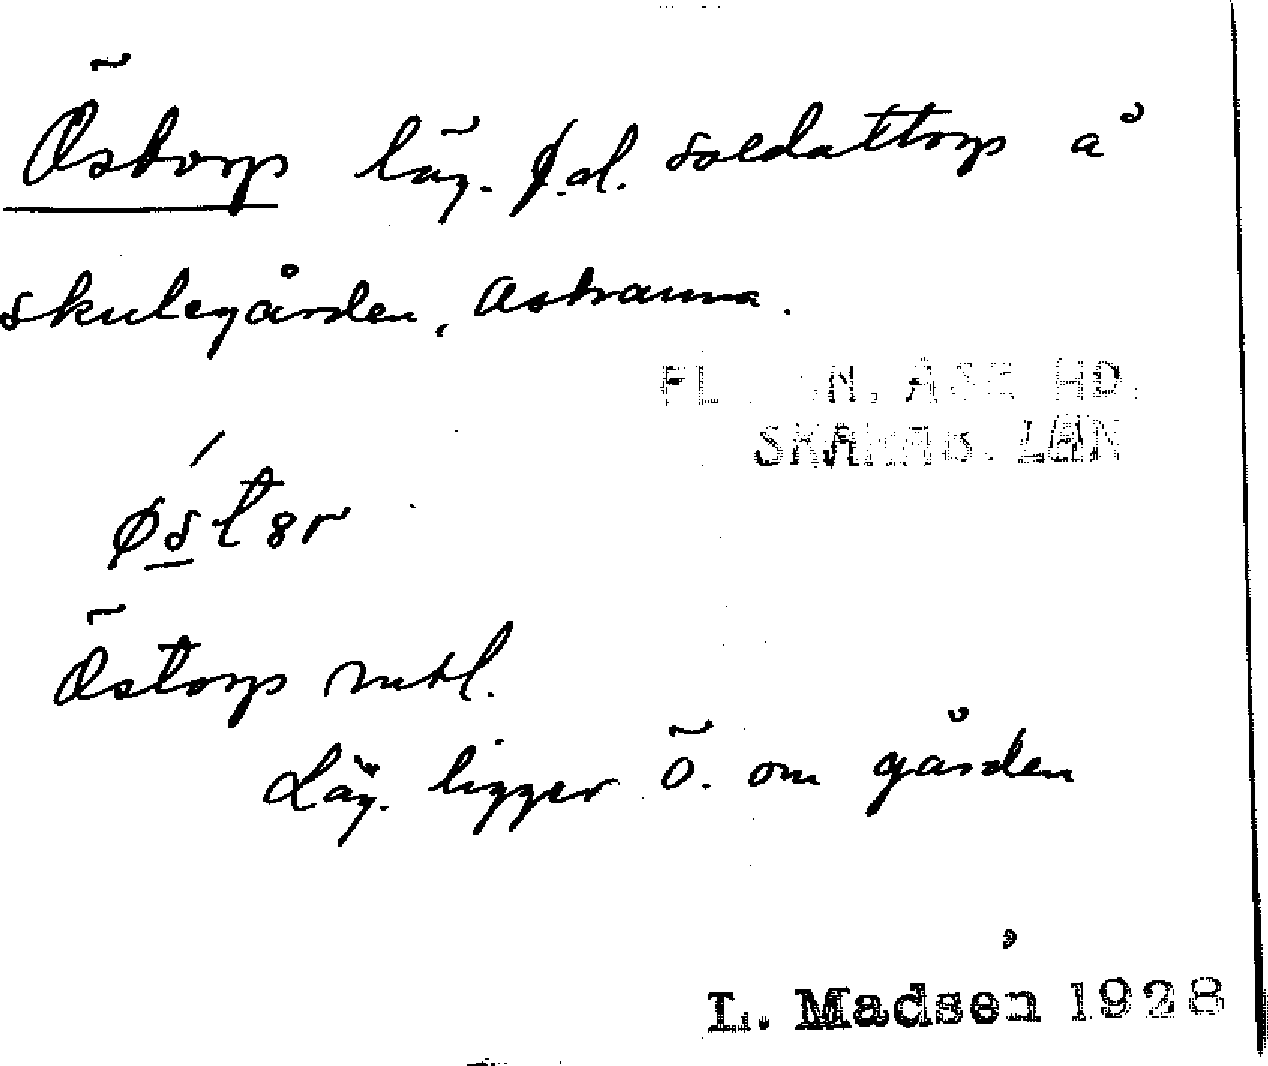 Östorp läg. f.d. soldattorp å
Skulegården, Åstranna.
FL SN. ÅSE HD.
SKARAB. LÄN
østər
Östorp mtl.
Läg. ligger ö. om gården
L. Madsén 1928